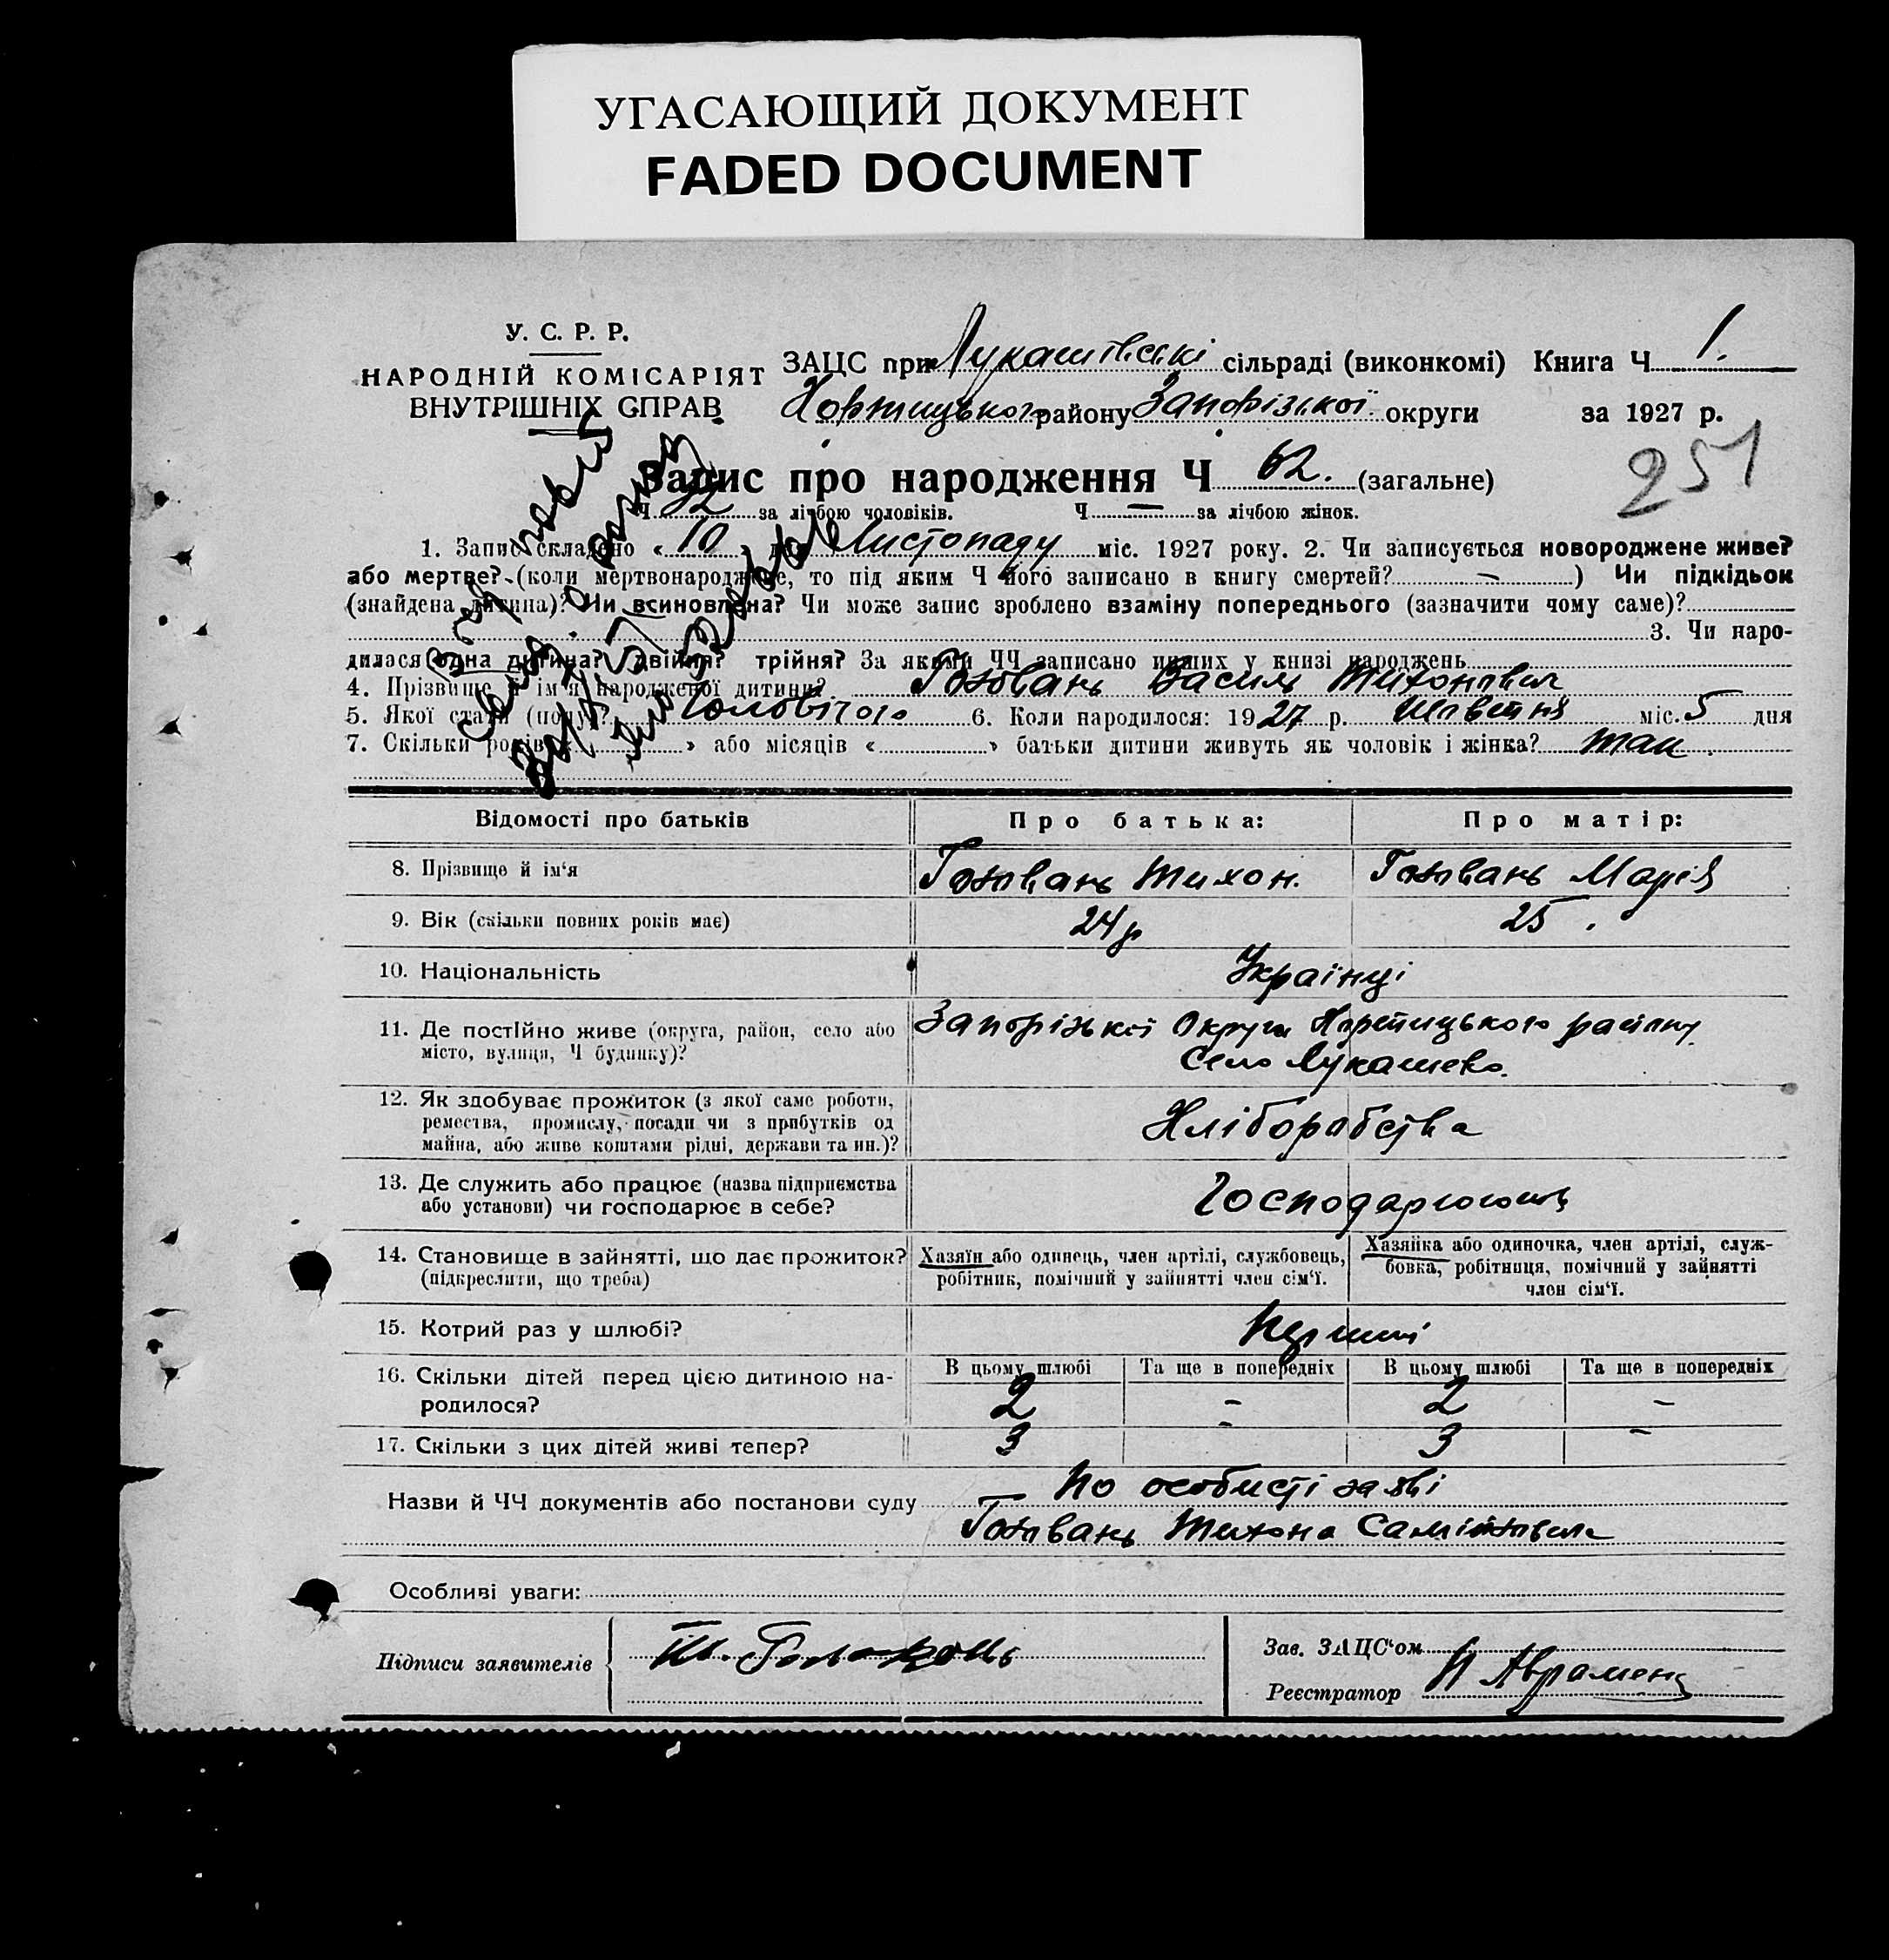 УГАСАЮЩИЙ ДОКУМЕНТ
FADED DOCUMENT
У. С. Р. Р.
НАРОДНІЙ КОМІСАРІЯТ
ВНУТРІШНІХ СПРАВ
ЗАЦС при Лукашівські сільраді (виконкомі) Книга Ч 1.
Хортицького району Запорізької округи за 1927 р.
251
Запис про народження Ч 62. (загальне)
Ч 32 за лічбою чоловіків. Ч — за лічбою жінок.
1. Запис складено « 10 » дня Листопаду міс. 1927 року. 2. Чи записується новороджене живе?
або мертве? (коли мертвонароджене, то під яким Ч його записано в книгу смертей? — ) Чи підкідьок
(знайдена дитина)? Чи всиновлена? Чи може запис зроблено взаміну попереднього (зазначити чому саме)?
3. Чи наро-
дилася одна дитина? двійня? трійня? За якими ЧЧ записано инших у книзі народжень
4. Прізвище й ім'я народженої дитини? Василь Тихонович
5. Якої статі (полу)? Чоловічого 6. Коли народилося: 1927 р. міс. 5 дня
7. Скільки років « » або місяців « » батьки дитини живуть як чоловік і жінка? так.
Відомості про батьків
Про батька:
Про матір:
8. Прізвище й ім'я
Тихон.
Марія
9. Вік (скільки повних років має)
24 р
25.
10. Національність
Українці
11. Де постійно живе (округа, район, село або
місто, вулиця, Ч будинку)?
Запорізької Округи Хортицького району
Село Лукашево.
12. Як здобуває прожиток (з якої саме роботи,
ремества, промислу, посади чи з прибутків од
майна, або живе коштами рідні, держави та ин.)?
Хліборобства
13. Де служить або працює (назва підприємства
або установи) чи господарює в себе?
Господарюють
14. Становище в зайнятті, що дає прожиток?
(підкреслити, що треба)
Хазяїн або одинець, член артілі, службовець,
робітник, помічний у зайнятті член сім'ї.
Хазяйка або одиночка, член артілі, служ-
бовка, робітниця, помічний у зайнятті
член сім'ї.
15. Котрий раз у шлюбі?
Перший
16. Скільки дітей перед цією дитиною на-
родилося?
В цьому шлюбі
Та ще в попередніх
В цьому шлюбі
Та ще в попередніх
2 – 2 –
17. Скільки з цих дітей живі тепер?
3 – 3 –
Назви й ЧЧ документів або постанови суду По особисті заяві
Тихона
Особливі уваги:
Підписи заявителів
Зав. ЗАЦС'ом
Реєстратор